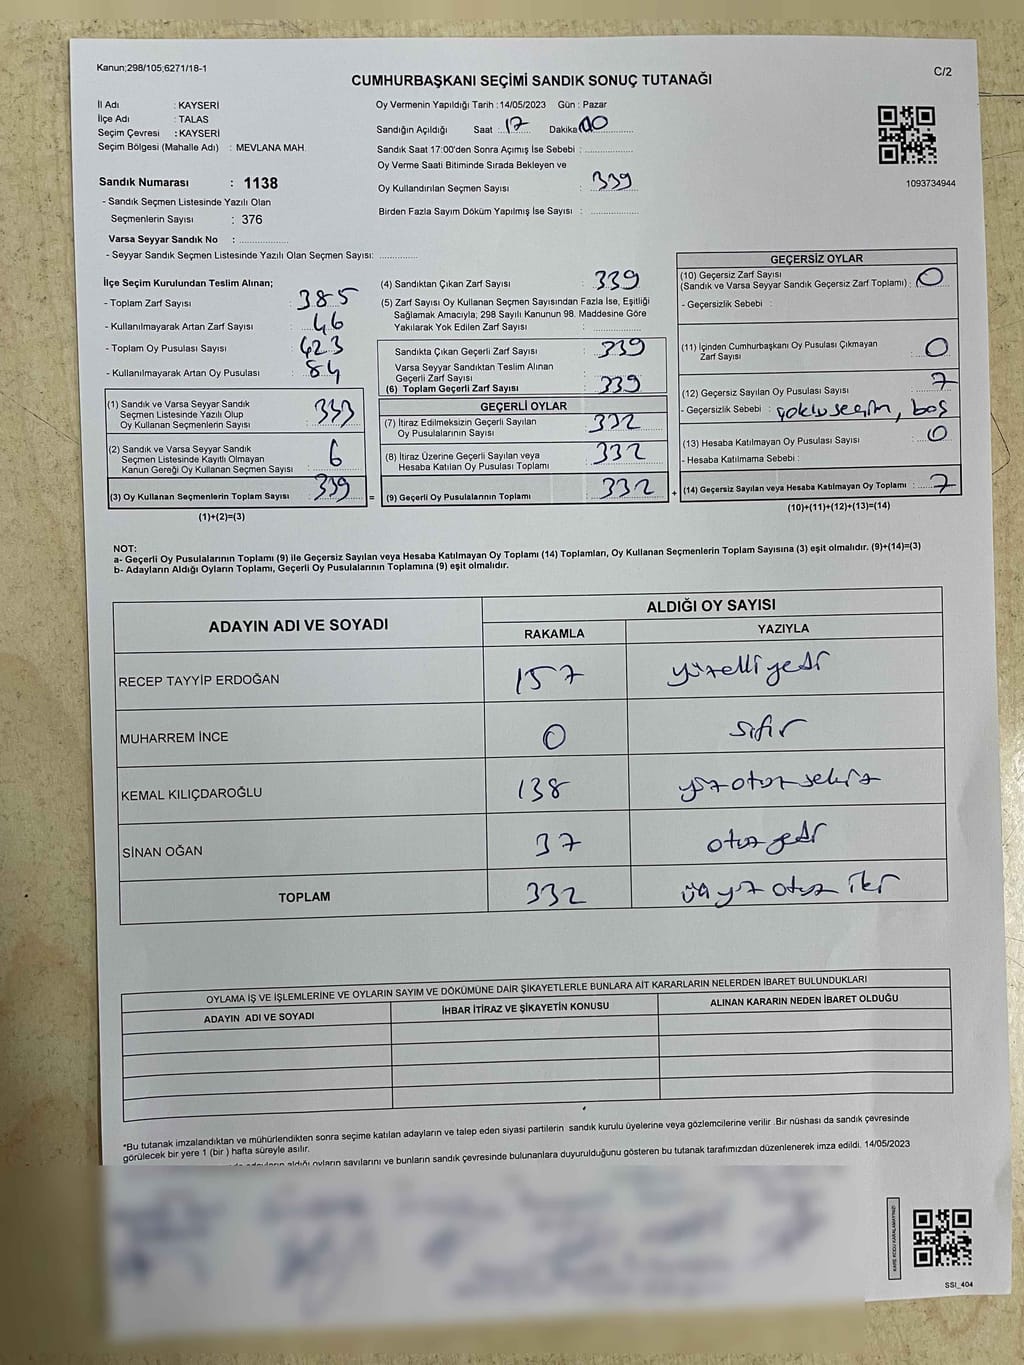 Kanun;298/105;6271/18-1
C/2
CUMHURBAŞKANI SEÇİMİ SANDIK SONUÇ TUTANAĞI
İl Adı : KAYSERİ
İlçe Adı : TALAS
Seçim Çevresi : KAYSERİ
Seçim Bölgesi (Mahalle Adı) : MEVLANA MAH.
Sandık Numarası : 1138
- Sandık Seçmen Listesinde Yazılı Olan
Seçmenlerin Sayısı : 376
Varsa Seyyar Sandık No :
- Seyyar Sandık Seçmen Listesinde Yazılı Olan Seçmen Sayısı:
Oy Vermenin Yapıldığı Tarih :14/05/2023 Gün : Pazar
Sandığın Açıldığı Saat : 17 Dakika 00
Sandık Saat 17:00'den Sonra Açımış İse Sebebi :
Oy Verme Saati Bitiminde Sırada Bekleyen ve
Oy Kullandırılan Seçmen Sayısı : 339
Birden Fazla Sayım Döküm Yapılmış İse Sayısı :
1093734944
İlçe Seçim Kurulundan Teslim Alınan;
- Toplam Zarf Sayısı : 385
- Kullanılmayarak Artan Zarf Sayısı : 46
- Toplam Oy Pusulası Sayısı : 423
- Kullanılmayarak Artan Oy Pusulası : 84
(1) Sandık ve Varsa Seyyar Sandık
Seçmen Listesinde Yazılı Olup
Oy Kullanan Seçmenlerin Sayısı : 333
(2) Sandık ve Varsa Seyyar Sandık
Seçmen Listesinde Kayıtlı Olmayan
Kanun Gereği Oy Kullanan Seçmen Sayısı : 6
(3) Oy Kullanan Seçmenlerin Toplam Sayısı : 339
(1)+(2)=(3)
(4) Sandıktan Çıkan Zarf Sayısı : 339
(5) Zarf Sayısı Oy Kullanan Seçmen Sayısından Fazla İse, Eşitliği
Sağlamak Amacıyla; 298 Sayılı Kanunun 98. Maddesine Göre
Yakılarak Yok Edilen Zarf Sayısı :
Sandıkta Çıkan Geçerli Zarf Sayısı : 339
Varsa Seyyar Sandıktan Teslim Alınan
Geçerli Zarf Sayısı :
(6) Toplam Geçerli Zarf Sayısı : 339
GEÇERLİ OYLAR
(7) İtiraz Edilmeksizin Geçerli Sayılan
Oy Pusulalarının Sayısı : 332
(8) İtiraz Üzerine Geçerli Sayılan veya
Hesaba Katılan Oy Pusulası Toplamı : 332
= (9) Geçerli Oy Pusulalarının Toplamı : 332
GEÇERSİZ OYLAR
(10) Geçersiz Zarf Sayısı
(Sandık ve Varsa Seyyar Sandık Geçersiz Zarf Toplamı) : 0
- Geçersizlik Sebebi :
(11) İçinden Cumhurbaşkanı Oy Pusulası Çıkmayan
Zarf Sayısı : 0
(12) Geçersiz Sayılan Oy Pusulası Sayısı : 7
- Geçersizlik Sebebi : çoklu seçim, boş
(13) Hesaba Katılmayan Oy Pusulası Sayısı : 0
- Hesaba Katılmama Sebebi :
+ (14) Geçersiz Sayılan veya Hesaba Katılmayan Oy Toplamı : 7
(10)+(11)+(12)+(13)=(14)
NOT:
a- Geçerli Oy Pusulalarının Toplamı (9) ile Geçersiz Sayılan veya Hesaba Katılmayan Oy Toplamı (14) Toplamları, Oy Kullanan Seçmenlerin Toplam Sayısına (3) eşit olmalıdır. (9)+(14)=(3)
b- Adayların Aldığı Oyların Toplamı, Geçerli Oy Pusulalarının Toplamına (9) eşit olmalıdır.
ADAYIN ADI VE SOYADI
ALDIĞI OY SAYISI
RAKAMLA YAZIYLA
RECEP TAYYİP ERDOĞAN 157 yüzelli yedi
MUHARREM İNCE 0 sıfır
KEMAL KILIÇDAROĞLU 138 yüz otuz sekiz
SİNAN OĞAN 37 otuz yedi
TOPLAM 332 üç yüz otuz iki
OYLAMA İŞ VE İŞLEMLERİNE VE OYLARIN SAYIM VE DÖKÜMÜNE DAİR ŞİKAYETLERLE BUNLARA AİT KARARLARIN NELERDEN İBARET BULUNDUKLARI
ADAYIN ADI VE SOYADI İHBAR İTİRAZ VE ŞİKAYETİN KONUSU ALINAN KARARIN NEDEN İBARET OLDUĞU
*Bu tutanak imzalandıktan ve mühürlendikten sonra seçime katılan adayların ve talep eden siyasi partilerin sandık kurulu üyelerine veya gözlemcilerine verilir .Bir nüshası da sandık çevresinde
görülecek bir yere 1 (bir ) hafta süreyle asılır.
aldığı oyların sayılarını ve bunların sandık çevresinde bulunanlara duyurulduğunu gösteren bu tutanak tarafımızdan düzenlenerek imza edildi. 14/05/2023
KARE KODU KARALAMAYINIZ!
SSI_404